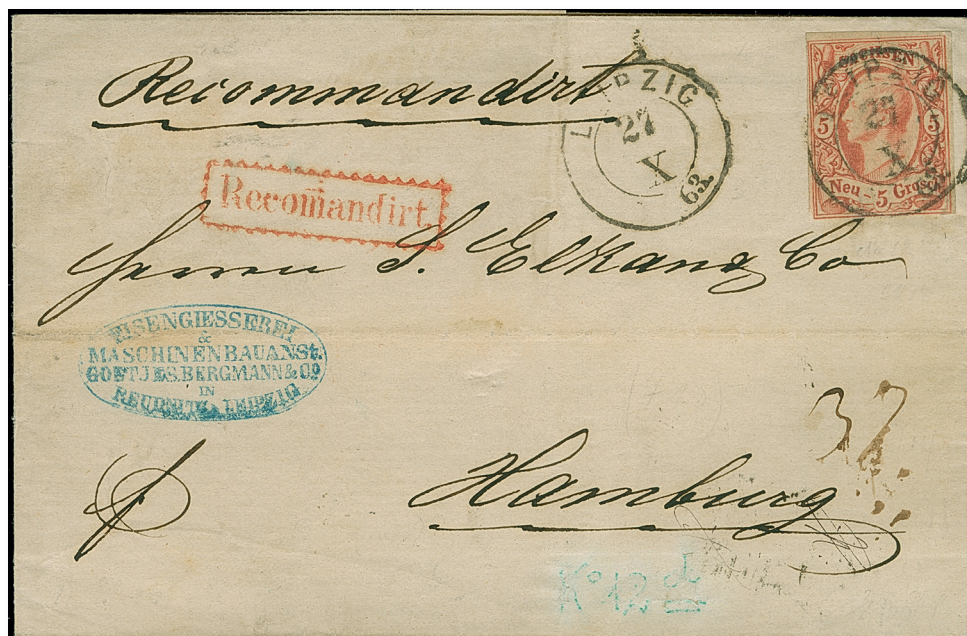 Recommandirt
LEIPZIG
27
X
63
SACHSEN
LEIPZIG
27
X
63
5 5
Neu-5. Grosch
Recom̄andirt.
Herrn S. Elkan & Co
EISENGIESSEREI
&
MASCHINENBAUANSt.
GOETJES, BERGMANN & Co
IN
REUDNITZ-LEIPZIG
37.
Hamburg